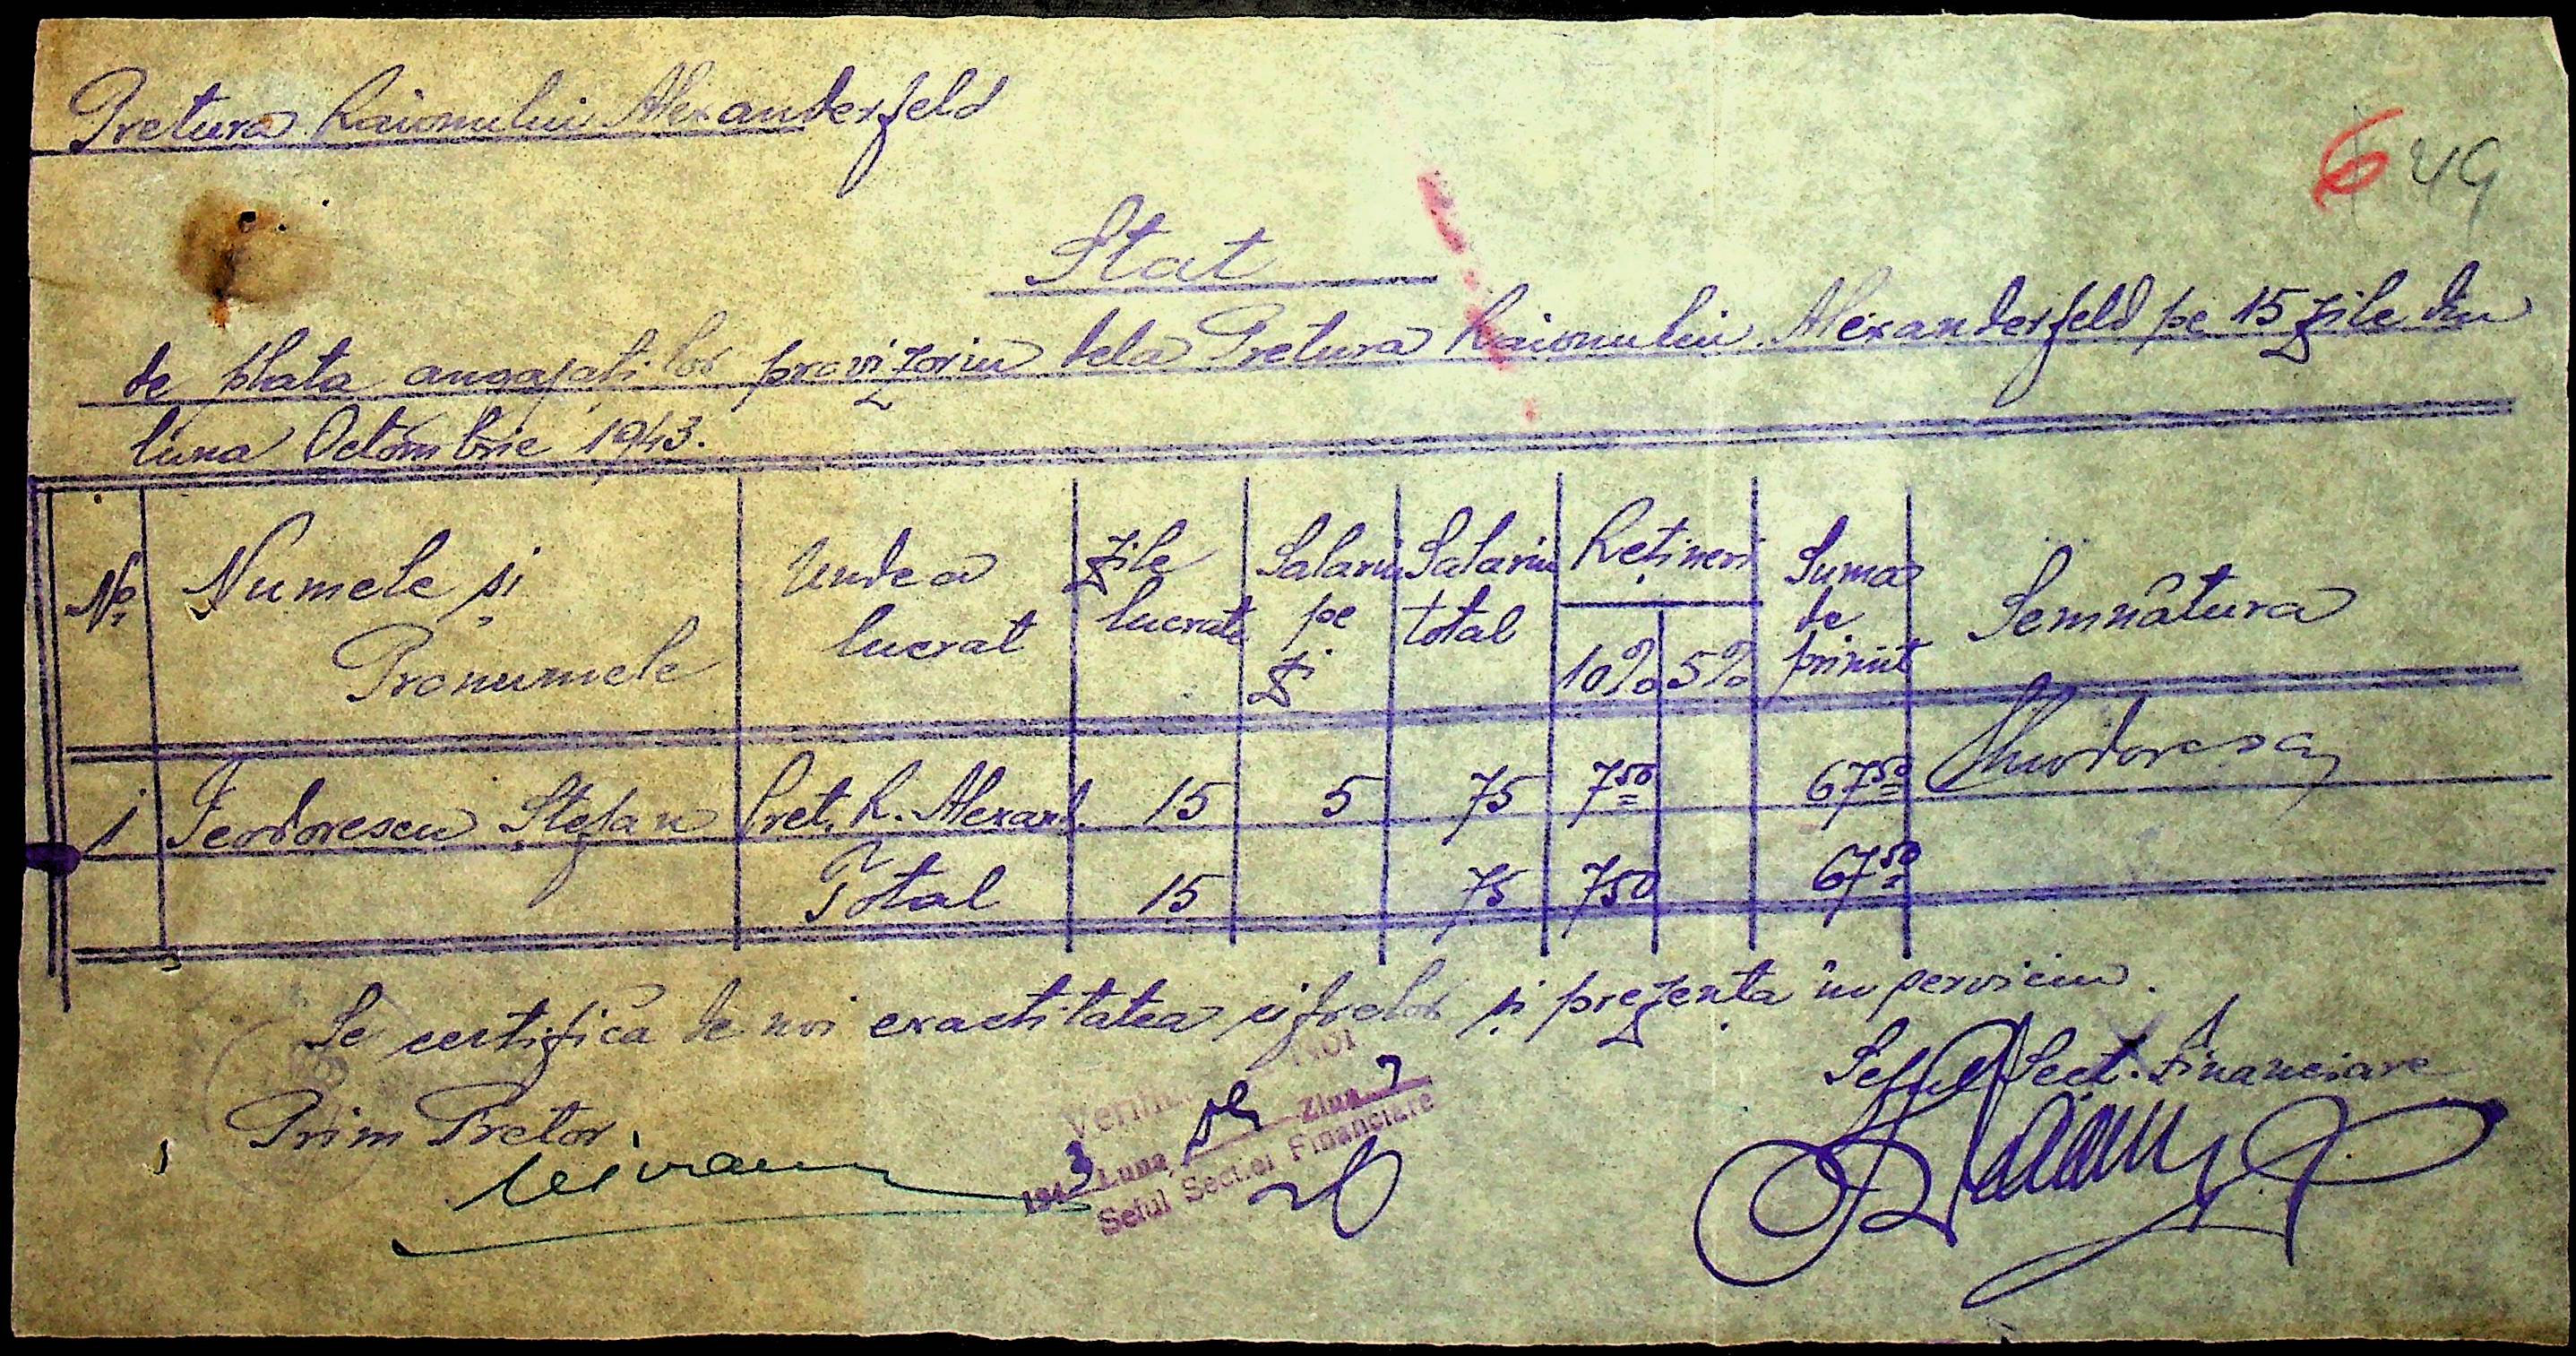 Pretura Raionului Alexanderfeld
6 49
Stat
de plata angajaților provizoriu dela Pretura Raionului Alexanderfeld pe 15 zile din
luna Octombrie 1943.
No Numele și Pronumele Unde a lucrat Zile lucrate Salariu pe zi Salariu total Rețineri 10% 5% Suma de primit Semnătura
1 Teodorescu Ștefan Pret. R. Alexand. 15 5 75 7 50 67 50
Total 15 75 7 50 67 50
Se certifica de noi exactitatea cifrelor și prezența în serviciu.
Prim Pretor,
Șeful Sect. Financiare
NOI
194 3 Luna Ziua
Seful Sectiei Financiare